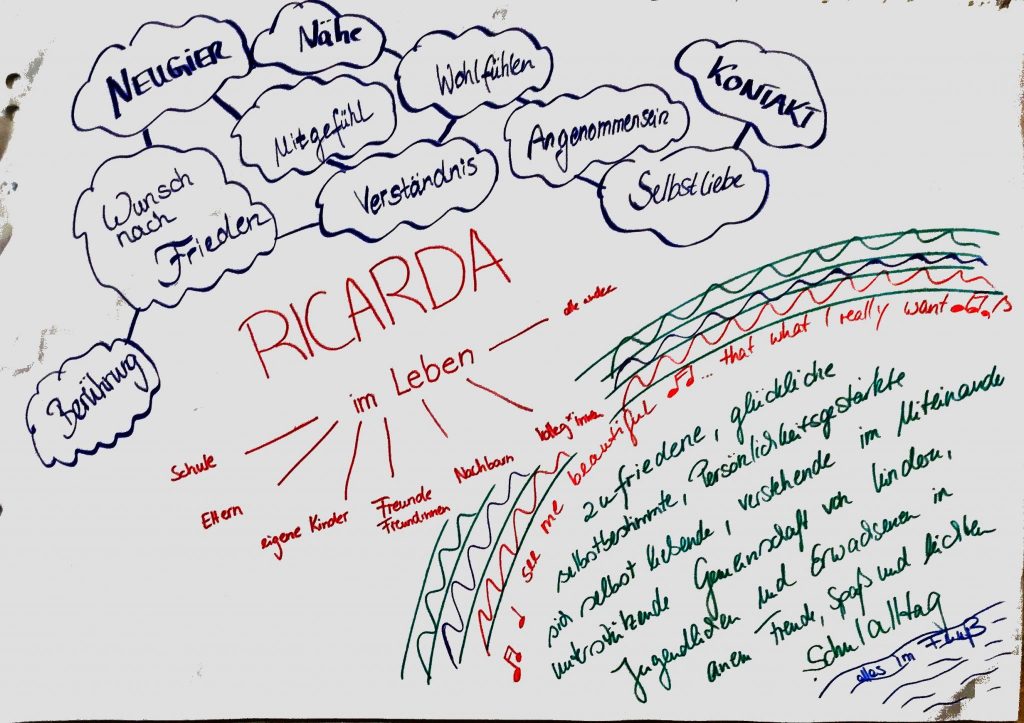 NEUGIER
Nähe
Wohlfühlen
KONTAKT
Mitgefühl
Angenommensein
Verständnis
Selbstliebe
Wunsch
nach
Frieden
Berührung
RICARDA
im Leben
alle anderen
Kolleg*innen
Nachbarn
Freunde
Freundinnen
eigene Kinder
Eltern
Schule
see me beautiful ... that what I really want
zufriedene, glückliche
selbstbestimmte, Persönlichkeitsgestärkte
sich selbst liebende, verstehende im Miteinander
unterstützende Gemeinschaft von Kindern,
Jugendlichen und Erwachsenen in
einem Freude, Spaß und leichten
Schulalltag
alles im Fluß